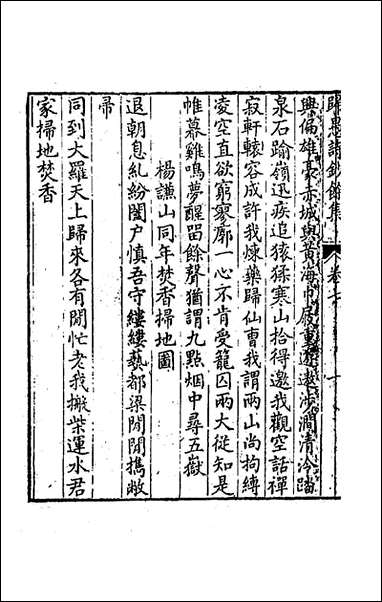 歸愚詩鈔餘集 卷七
興偏雄豪赤城與黃海巾屐重遊遨涉澗清泠踏
泉石踰嶺迅疾追猿猱寒山拾得邀我觀空話禪
寂軒轅容成許我煉藥歸仙曹我謂兩山尚拘縛
凌空直欲窮寥廓一心不肯受籠囚兩大從知是
帷幕雞鳴夢醒留餘聲猶謂九點烟中尋五嶽
楊謙山同年焚香掃地圖
退朝息糺紛闔户慎吾守縷縷爇都梁閒閒攜敝
帚
同到大羅天上歸來各有閒忙老我搬柴運水君
家掃地焚香